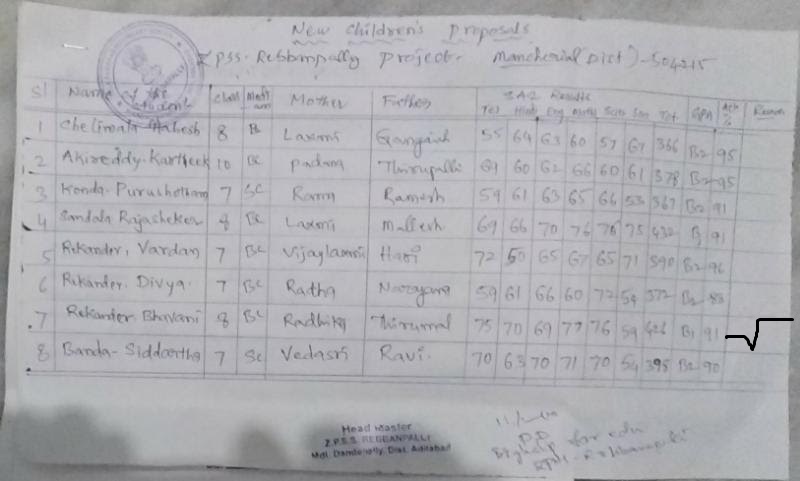 New Children's Proposals
ZPSS. Rebbanpally Project. Mancherial Dist)-504215
Sl Name of the student Class Mother Father SA2 Results
Tel Hindi Eng Maths Scin Son Tot GPA %
1 Chelimala Mahesh 8 BC Laxmi Gangaiah 55 64 63 60 57 67 366 B2 95
2 Akireddy. Kartheek 10 BC Padma Thirupathi 69 60 62 66 60 61 378 B2 95
3 Konda. Purushotham 7 SC Rama Ramesh 59 61 63 65 66 53 367 B2 91
4 Sandala Rajasheker 8 BC Laxmi Mallesh 69 66 70 76 76 75 432 B1 91
5 Rekander, Vardan 7 BC Vijaylaxmi Hari 72 50 65 67 65 71 390 B2 96
6 Rekander. Divya. 7 BC Radha Narayana 59 61 66 60 72 54 372 B2 88
7 Rekander. Bhavani 8 BC Radhika Thirumal 75 70 69 77 76 59 426 B1 91
8 Banda. Siddartha 7 SC Vedasri Ravi. 70 63 70 71 70 54 395 B2 90
Head Master
Z.P.S.S. REBBANPALLI
Mdl. Dandepally, Dist. Adilabad
P.D
Bighelp for edu